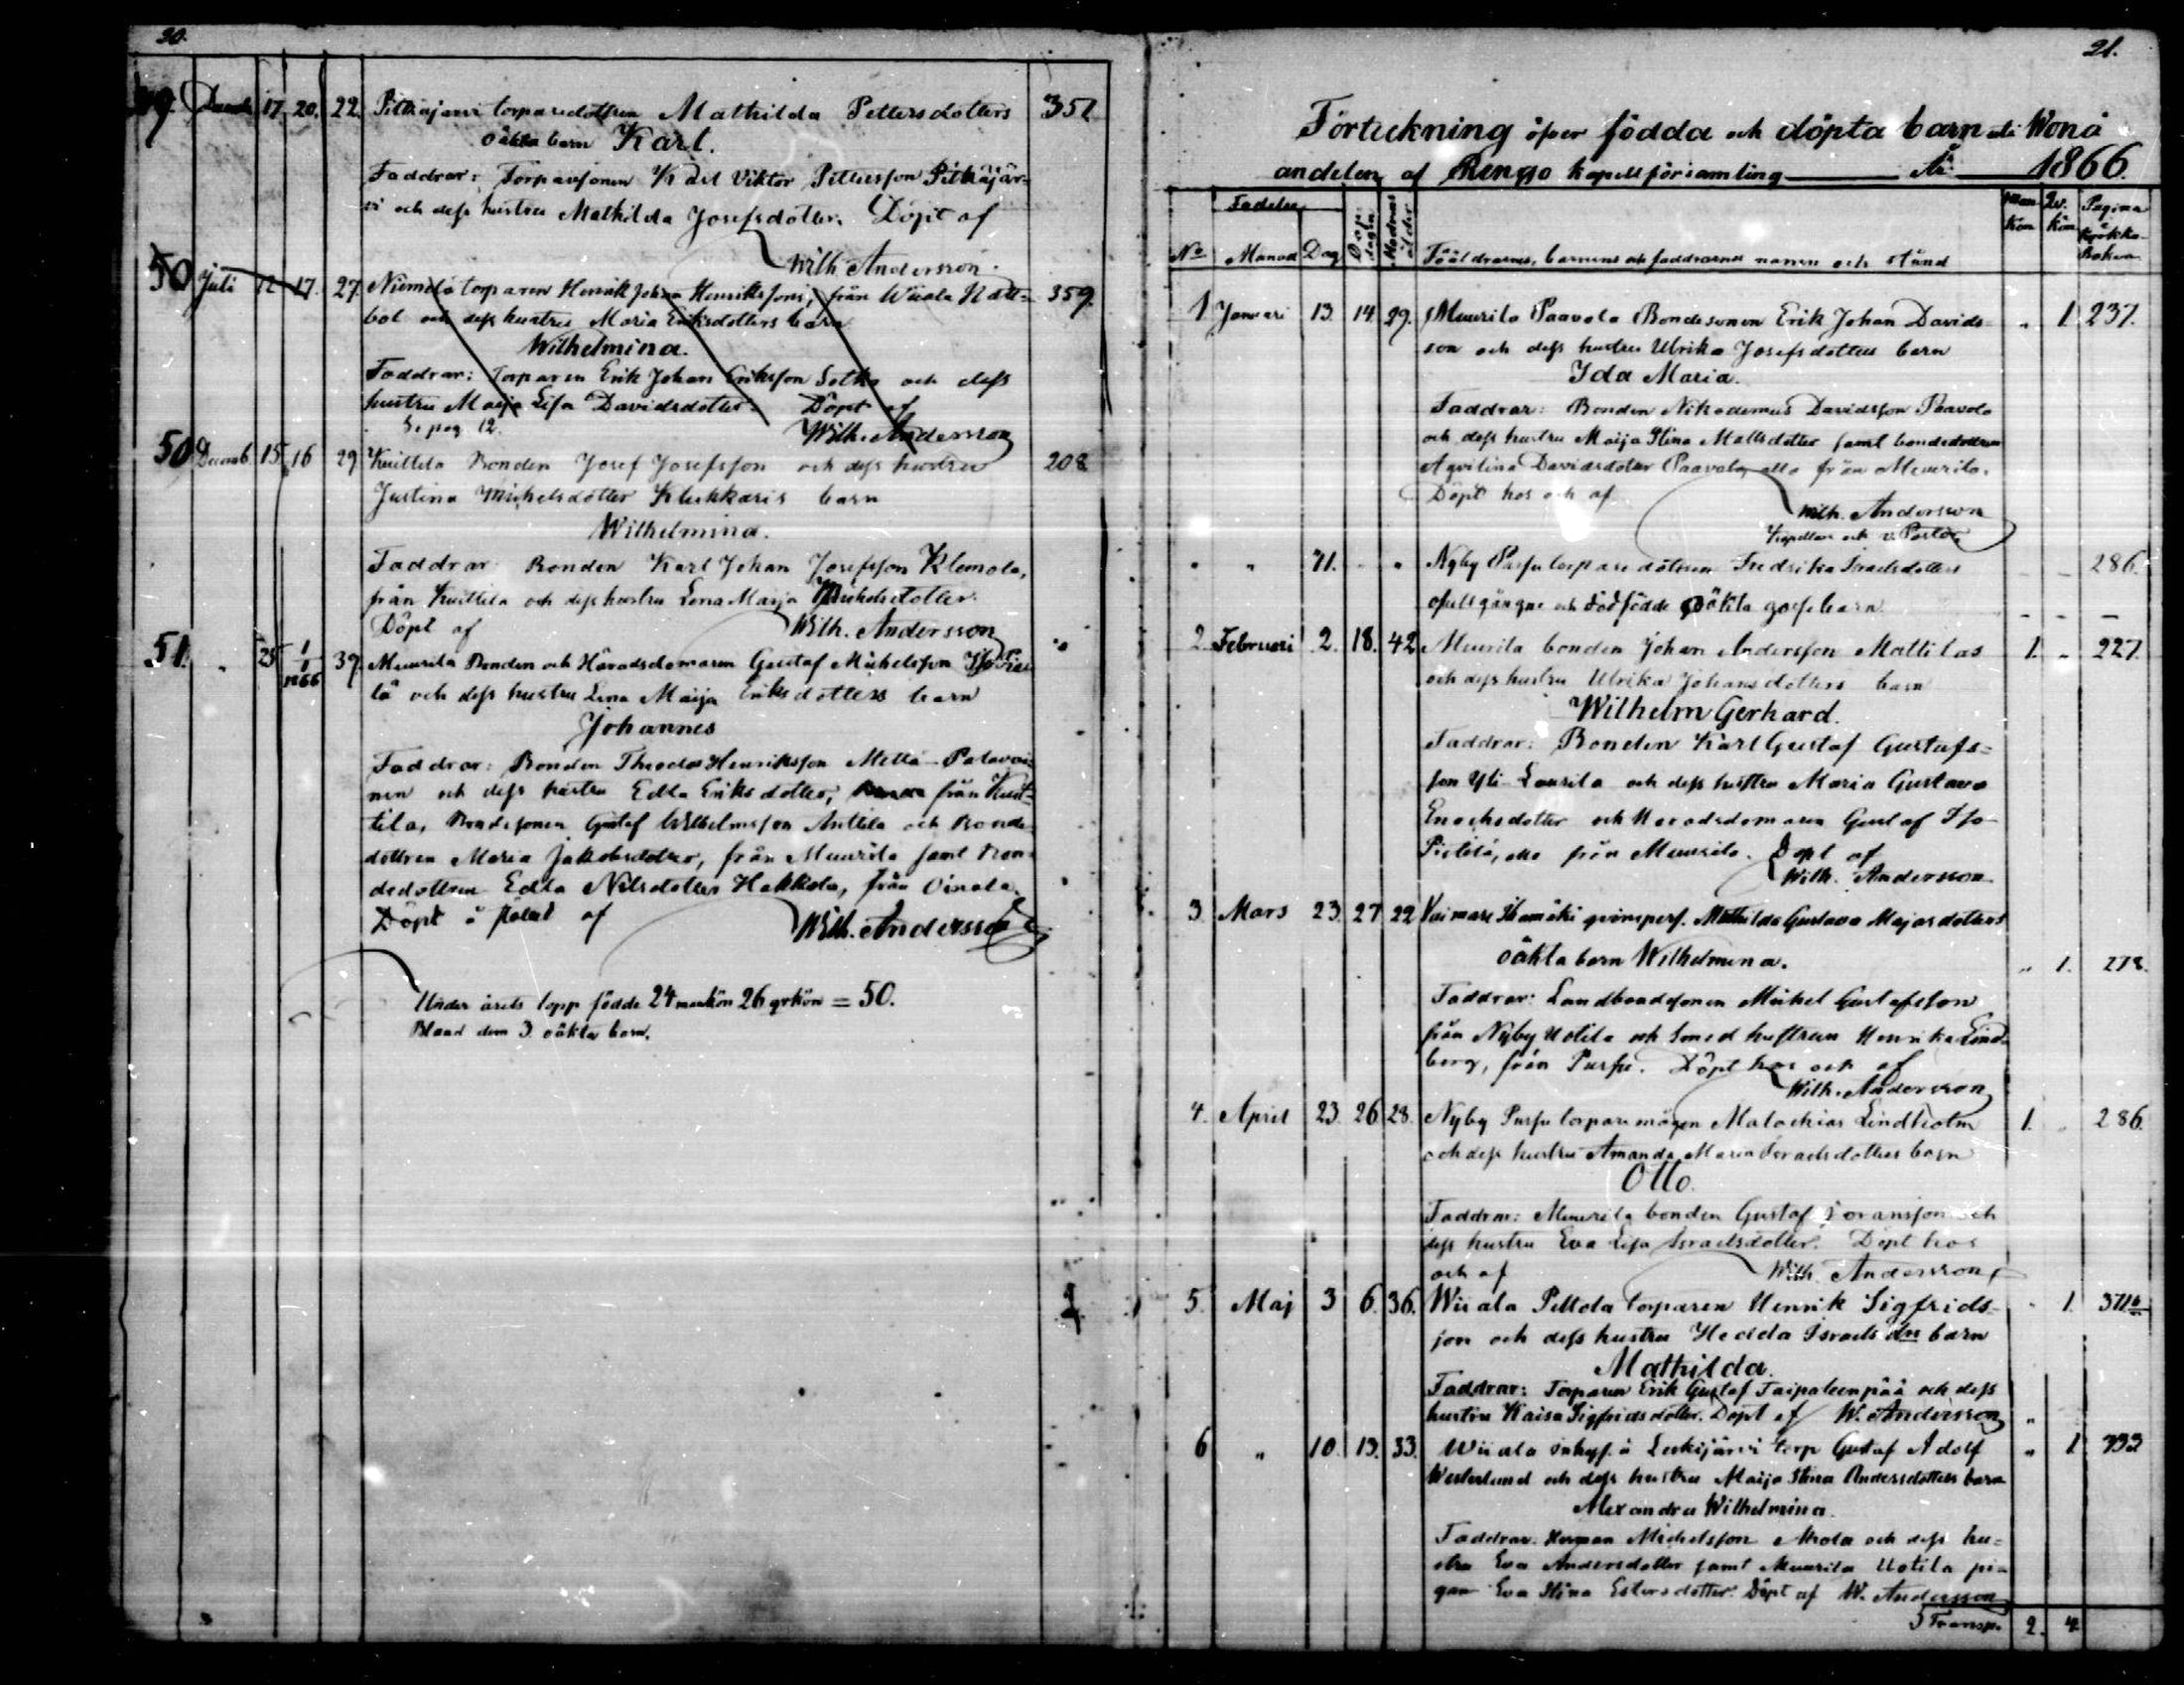 20.
49. Decemb 17 20. 22. Pitkäjärvi torparedottren Mathilda Pettersdotters 351
oäkta barn Karl.
Faddrar: Torparsonen Karl Viktor Pettersson Pitkäjär-
vi och dess hustru Mathilda Josefsdotter. Döpt af
Wilh Andersson.
50 Juli 12 17. 27. Niemelä torparen Henrik Johan Henrikssons, från Wiiala Ratt- 359.
bol och dess hustru Maria Eriksdotters barn
Wilhelmina.
Faddrar: Torparen Erik Johan Eriksson Sotka och dess
hustru Maija Lisa Davidsdotter. Döpt af
Se pag 12. Wilh. Andersson
50 Decemb. 15 16 29 Kuittila Bonden Josef Josefsson och dess hustru 208
Justina Michelsdotter Klukkaris barn
Wilhelmina.
Faddrar: Bonden Karl Johan Josefsson Klemola,
från Kuittila och dess hustru Lena Maija Michelsdotter.
Döpt af Wilh. Andersson
51. " 25 1/1 1866 39. Muurila Bonden och Häradsdomaren Gustaf Michelsson Iso Pieti-
lä och dess hustru Lena Maija Eriksdotters barn
Johannes
Faddrar: Bonden Theodor Henriksson Mella-Palavai-
nen och dess hustru Edla Eriksdotter, från Kuit-
tila, Bondesonen Gustaf Wilhelmsson Anttila och Bonde-
dottren Maria Jakobsdotter, från Muurila samt Bon-
dedottren Edla Nilsdotter Hakkola, från Oinala.
Döpt å stället af Wilh. Andersson
Under årets lopp födde 24 mankön 26 qvkön = 50.
Bland dem 3 oäkta barn.
21.
Förteckning öfver födda och döpta barn uti Wonå
andelen af Rengo kapellförsamling År 1866.
Födelse
No Månad Dag Döpe dagen Modrens ålder Föräldrarnes, barnens och faddrarnes namn och stånd Man Kön Qv. Kön Pagina i Kyrkko-boken
1 Januari 13 14 29. Muurila Paavola Bondesonen Erik Johan Davids- " 1. 237.
son och dess hustru Ulrika Josefsdotters barn
Ida Maria.
Faddrar: Bonden Nikodemus Davidsson Paavola
och dess hustru Maija Stina Mattsdotter samt bondedottren
Aqvilina Davidsdotter Paavola, alla från Muurila.
Döpt hos och af
Wilh. Andersson
Kapellan och v. Pastor
" " 21. - " Nyby Pursu torpare dottren Fredrika Israelsdotters - - 286.
ofullgångne och dödfödde oäkta gossebarn - - -
2 Februari 2. 18. 42 Muurila bonden Johan Andersson Mattilas 1. " 227.
och dess hustru Ulrika Johansdotters barn
Wilhelm Gerhard.
Faddrar: Bonden Karl Gustaf Gustafs-
son Yli-Laurila och dess hustru Maria Gustava
Enochsdotter och Häradsdomaren Gustaf Iso-
Pietilä, alla från Muurila. Döpt af
Wilh. Andersson
3 Mars 23 27 22 Vuimare Hamäki qvinspers. Mathilda Gustava Majasdotters
oäkta barn Wilhelmina. " 1. 278.
Faddrar: Landbondesonen Michel Gustafsson
från Nyby Uotila och Smedhustrun Henrika Lind-
berg, från Pursu. Döpt hos och af
Wilh. Andersson
4. April 23 26 28. Nyby Pursu torparemågen Malachias Lindholm 1. " 286.
och dess hustru Amanda Maria Israelsdotters barn
Otto.
Faddrar: Muurila bonden Gustaf Göransson och
dess hustru Eva Lisa Israelsdotter. Döpt hos
och af Wilh. Andersson
5. Maj 3 6. 36. Wiiala Peltola torparen Henrik Sigfrids- " 1. 371
son och dess hustru Hedda Israels drs barn
Mathilda.
Faddrar: Torparen Erik Gustaf Taipaleenpää och dess
hustru Kaisa Sigfridsdotter. Döpt af W. Andersson "
6 " 10. 13. 33. Wiiala inhys. å Leskijärvi torp Gustaf Adolf " 1 393
Westerlund och dess hustru Maija Stina Andersdotters barn
Alexandra Wilhelmina.
Faddrar: Herman Michelsson Ahola och dess hu-
stru Eva Andersdotter samt Muurila Uotila pi-
gan Eva Stina Estersdotter. Döpt af W. Andersson
Transp. 2. 4